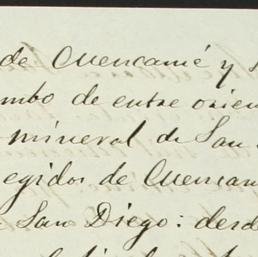 de Cuencamé y
mbo de entre orien
mineral de San
egidos de Cuencam
San Diego: desd